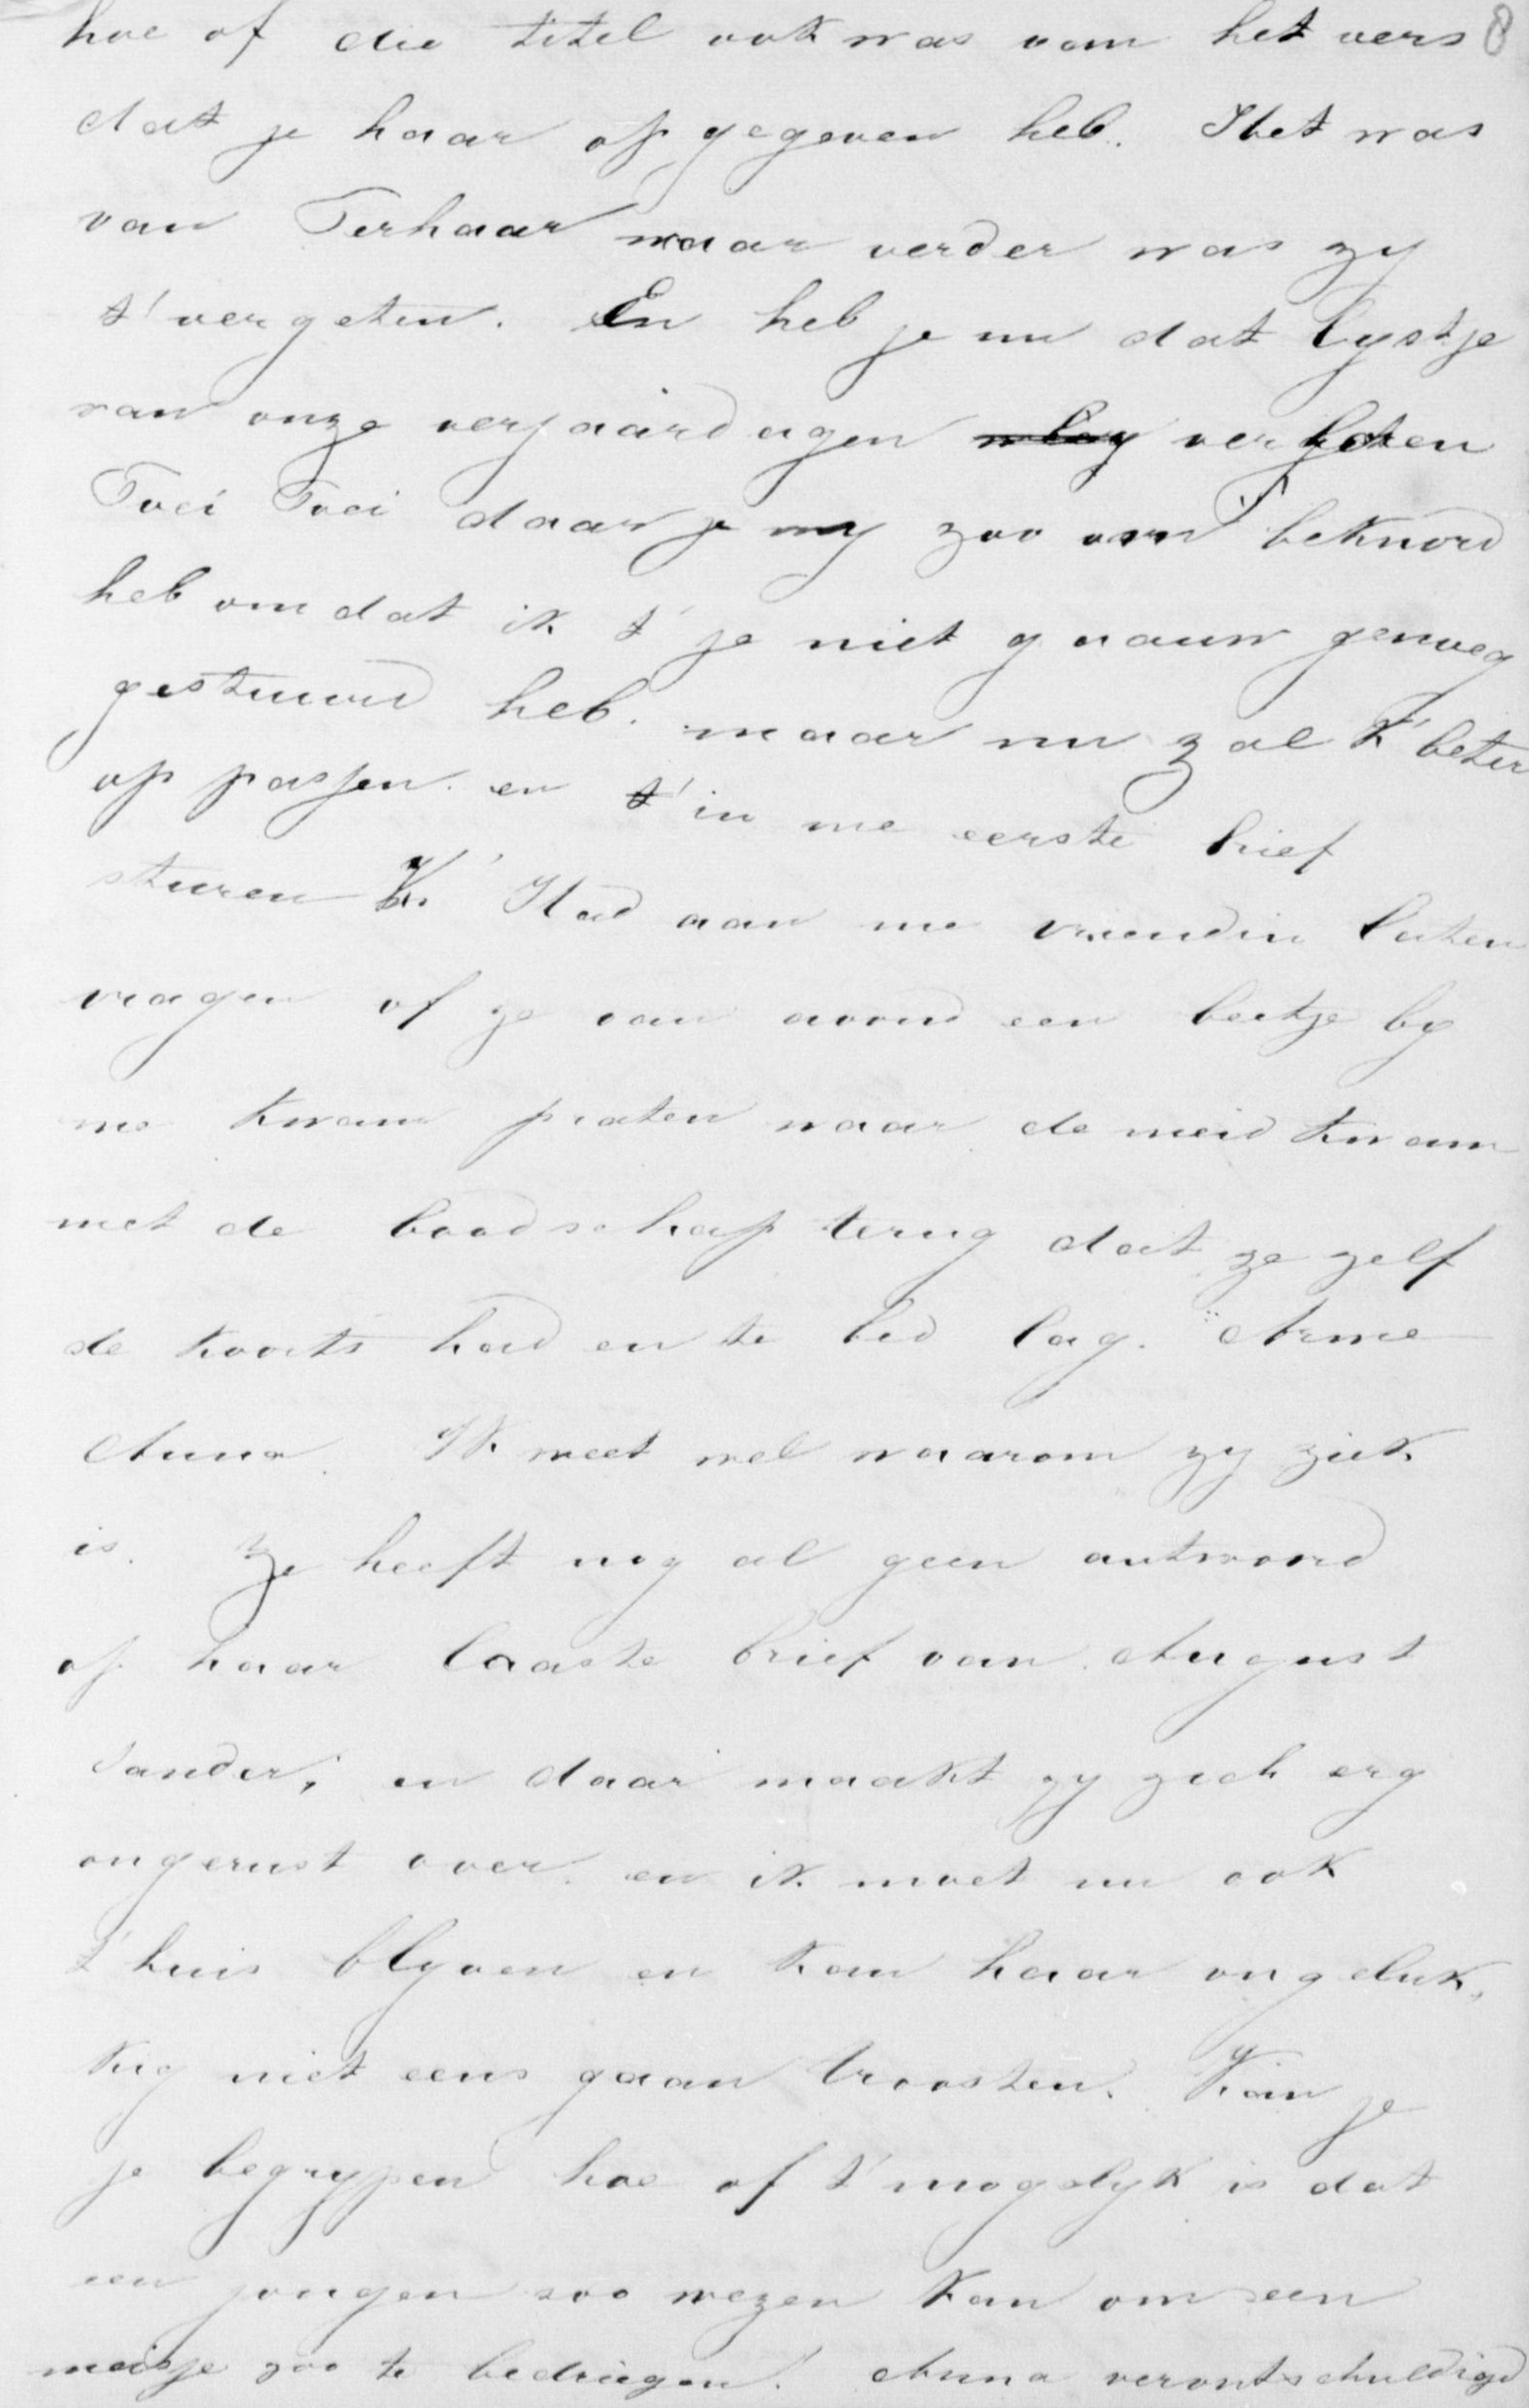 hoe of die titel ook was van het vers 8
dat je haar opgegeven heb. Het was
van Terhaar maar verder was zy
t' vergeten. En heb je nu dat lystje
van onze verjaardagen verloren
Foei Foei daar je my zoo om beknord
heb omdat ik t' je niet gaauw genoeg
gestuurd heb. maar nu zal k' beter
op passen. en t' in me eerste brief
sturen K' Had aan me vriendin laten
vragen of ze van avond een beetje by
me kwam praten maar de meid kwam
met de boodschap terug dat ze zelf
de koorts had en te bed lag. Arme
Anna. Ik weet wel waarom zy ziek
is. Ze heeft nog al geen antwoord
op haar laaste brief van August
Sander, en daar maakt zy zich erg
ongerust over. en ik moet nu ook
t' huis blyven en kan haar ongeluk,
kig niet eens gaan troosten. Kan je
je begrypen hoe of t' mogelyk is dat
een jongen zoo wezen kan om een
meisje zoo te bedriegen! Anna verontschuldigd